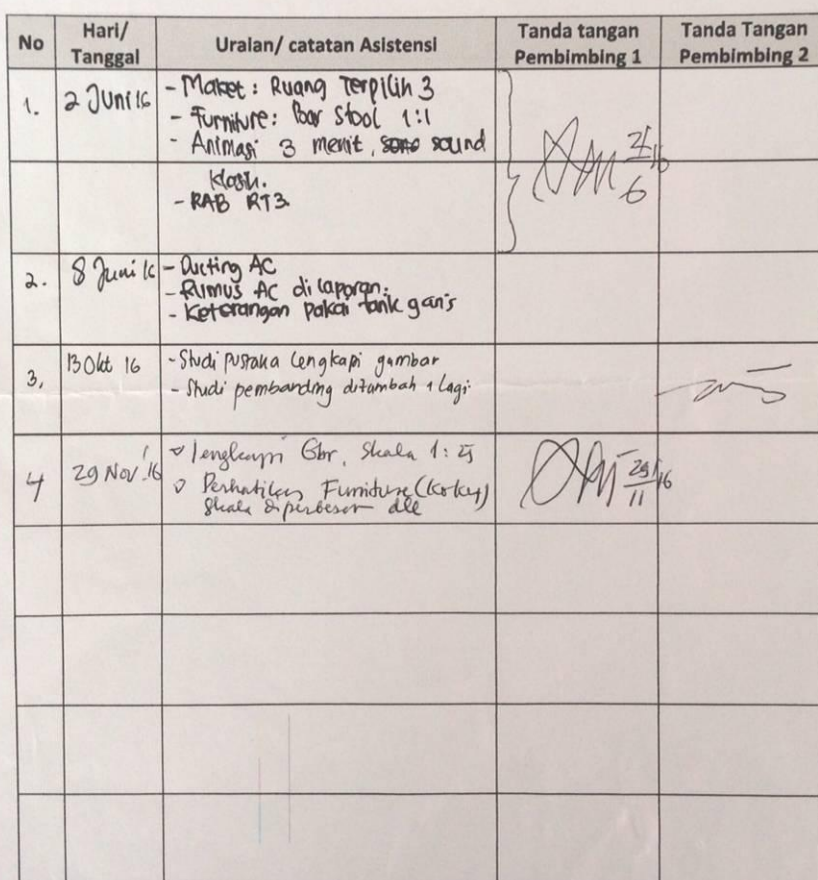 No
Hari/
Tanggal
Uraian/ catatan Asistensi
Tanda tangan
Pembimbing 1
Tanda Tangan
Pembimbing 2
1.
2 Juni 16
- Maket : Ruang Terpilih 3
- Furniture: Bar Stool 1:1
- Animasi 3 menit, sound
- RAB RT3.
2.
8 Juni 16
- Ducting AC
- Rumus AC di laporan.
- Keterangan pakai tarik garis
3.
13 Okt 16
- Studi pustaka lengkapi gambar
- Studi pembanding ditambah 1 lagi
4
29 Nov '16
lengkapi Gbr, Skala 1:
Perhatikan Furniture
skala diperbesar dll